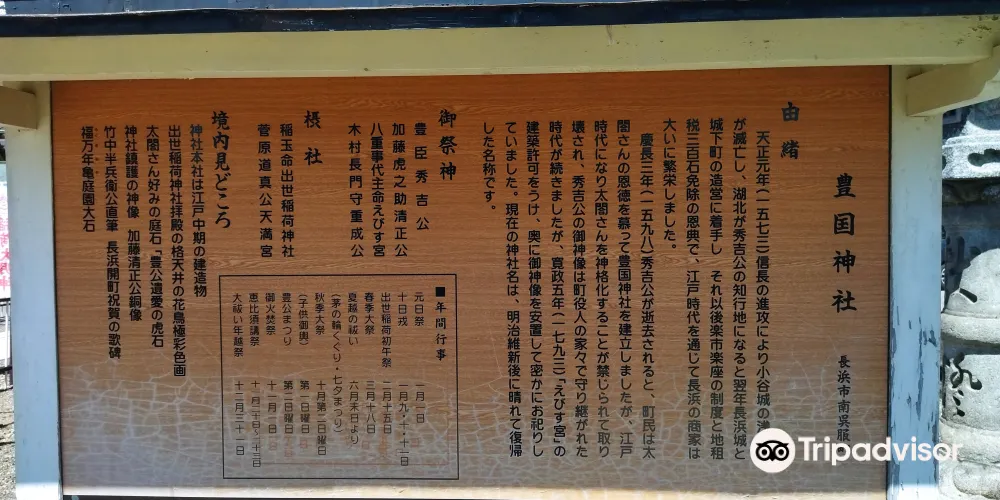 豊国神社
長浜市南呉服
由緒
天正元年(一五七三)信長の進攻により小谷城の浅
が滅亡し、湖北が秀吉公の知行地になると翌年長浜城と
城下町の造営に着手し それ以後楽市楽座の制度と地租
税三百石免除の恩典で、江戸時代を通じて長浜の商家は
大いに繁栄しました。
慶長三年(一五九八)秀吉公が逝去されると、町民は太
閤さんの恩徳を慕って豊国神社を建立しましたが、江戸
時代になり太閤さんを神格化することが禁じられて取り
壊され、秀吉公の御神像は町役人の家々で守り継がれた
時代が続きましたが、寛政五年(一七九三)「えびす宮」の
建築許可をうけ、奥に御神像を安置して密かにお祀りし
ていました。現在の神社名は、明治維新後に晴れて復帰
した名称です。
御祭神
豊臣秀吉公
加藤虎之助清正公
八重事代主命えびす宮
木村長門守重成公
摂社
稲玉命出世稲荷神社
菅原道真公天満宮
■年間行事
元日祭 一月一日
十日戎 一月九・十・十一日
出世稲荷初午祭 二月十五日
春季大祭 三月十八日
夏越の祓い 六月末日より
(茅の輪くぐり・七夕まつり)
秋季大祭 十月第二日曜日
(子供御輿) 第一日曜日
豊公まつり 第二日曜日
御火焚祭 十一月一日
恵比寿講祭 十一月二十日・二十三日
大祓い年越祭 十二月三十一日
境内見どころ
神社本社は江戸中期の建造物
出世稲荷神社拝殿の格天井の花鳥極彩色画
太閤さん好みの庭石「豊公遺愛の虎石
神社鎮護の神像 加藤清正公銅像
竹中半兵衛公直筆 長浜開町祝賀の歌碑
福万年亀庭園大石
Tripadvisor